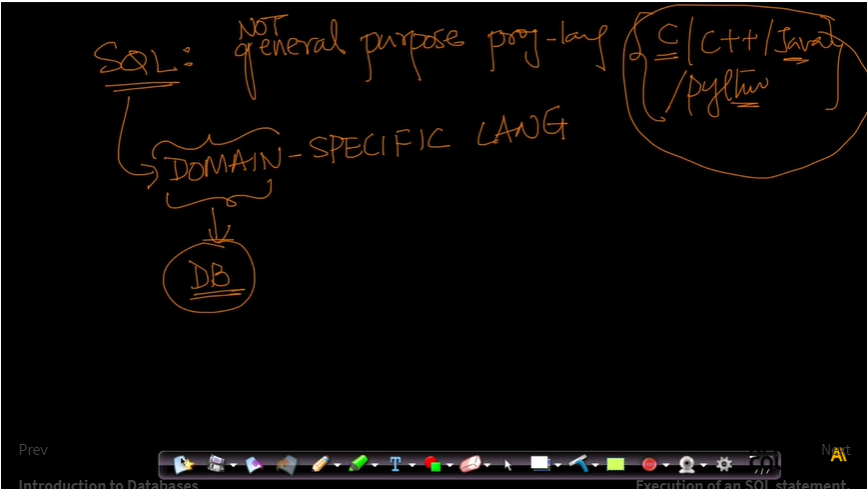 NOT
SQL: general purpose prog-lang [C/C++/Java
/python]
DOMAIN-SPECIFIC LANG
DB
Prev
Next
Introduction to Databases
Execution of an SQL statement.